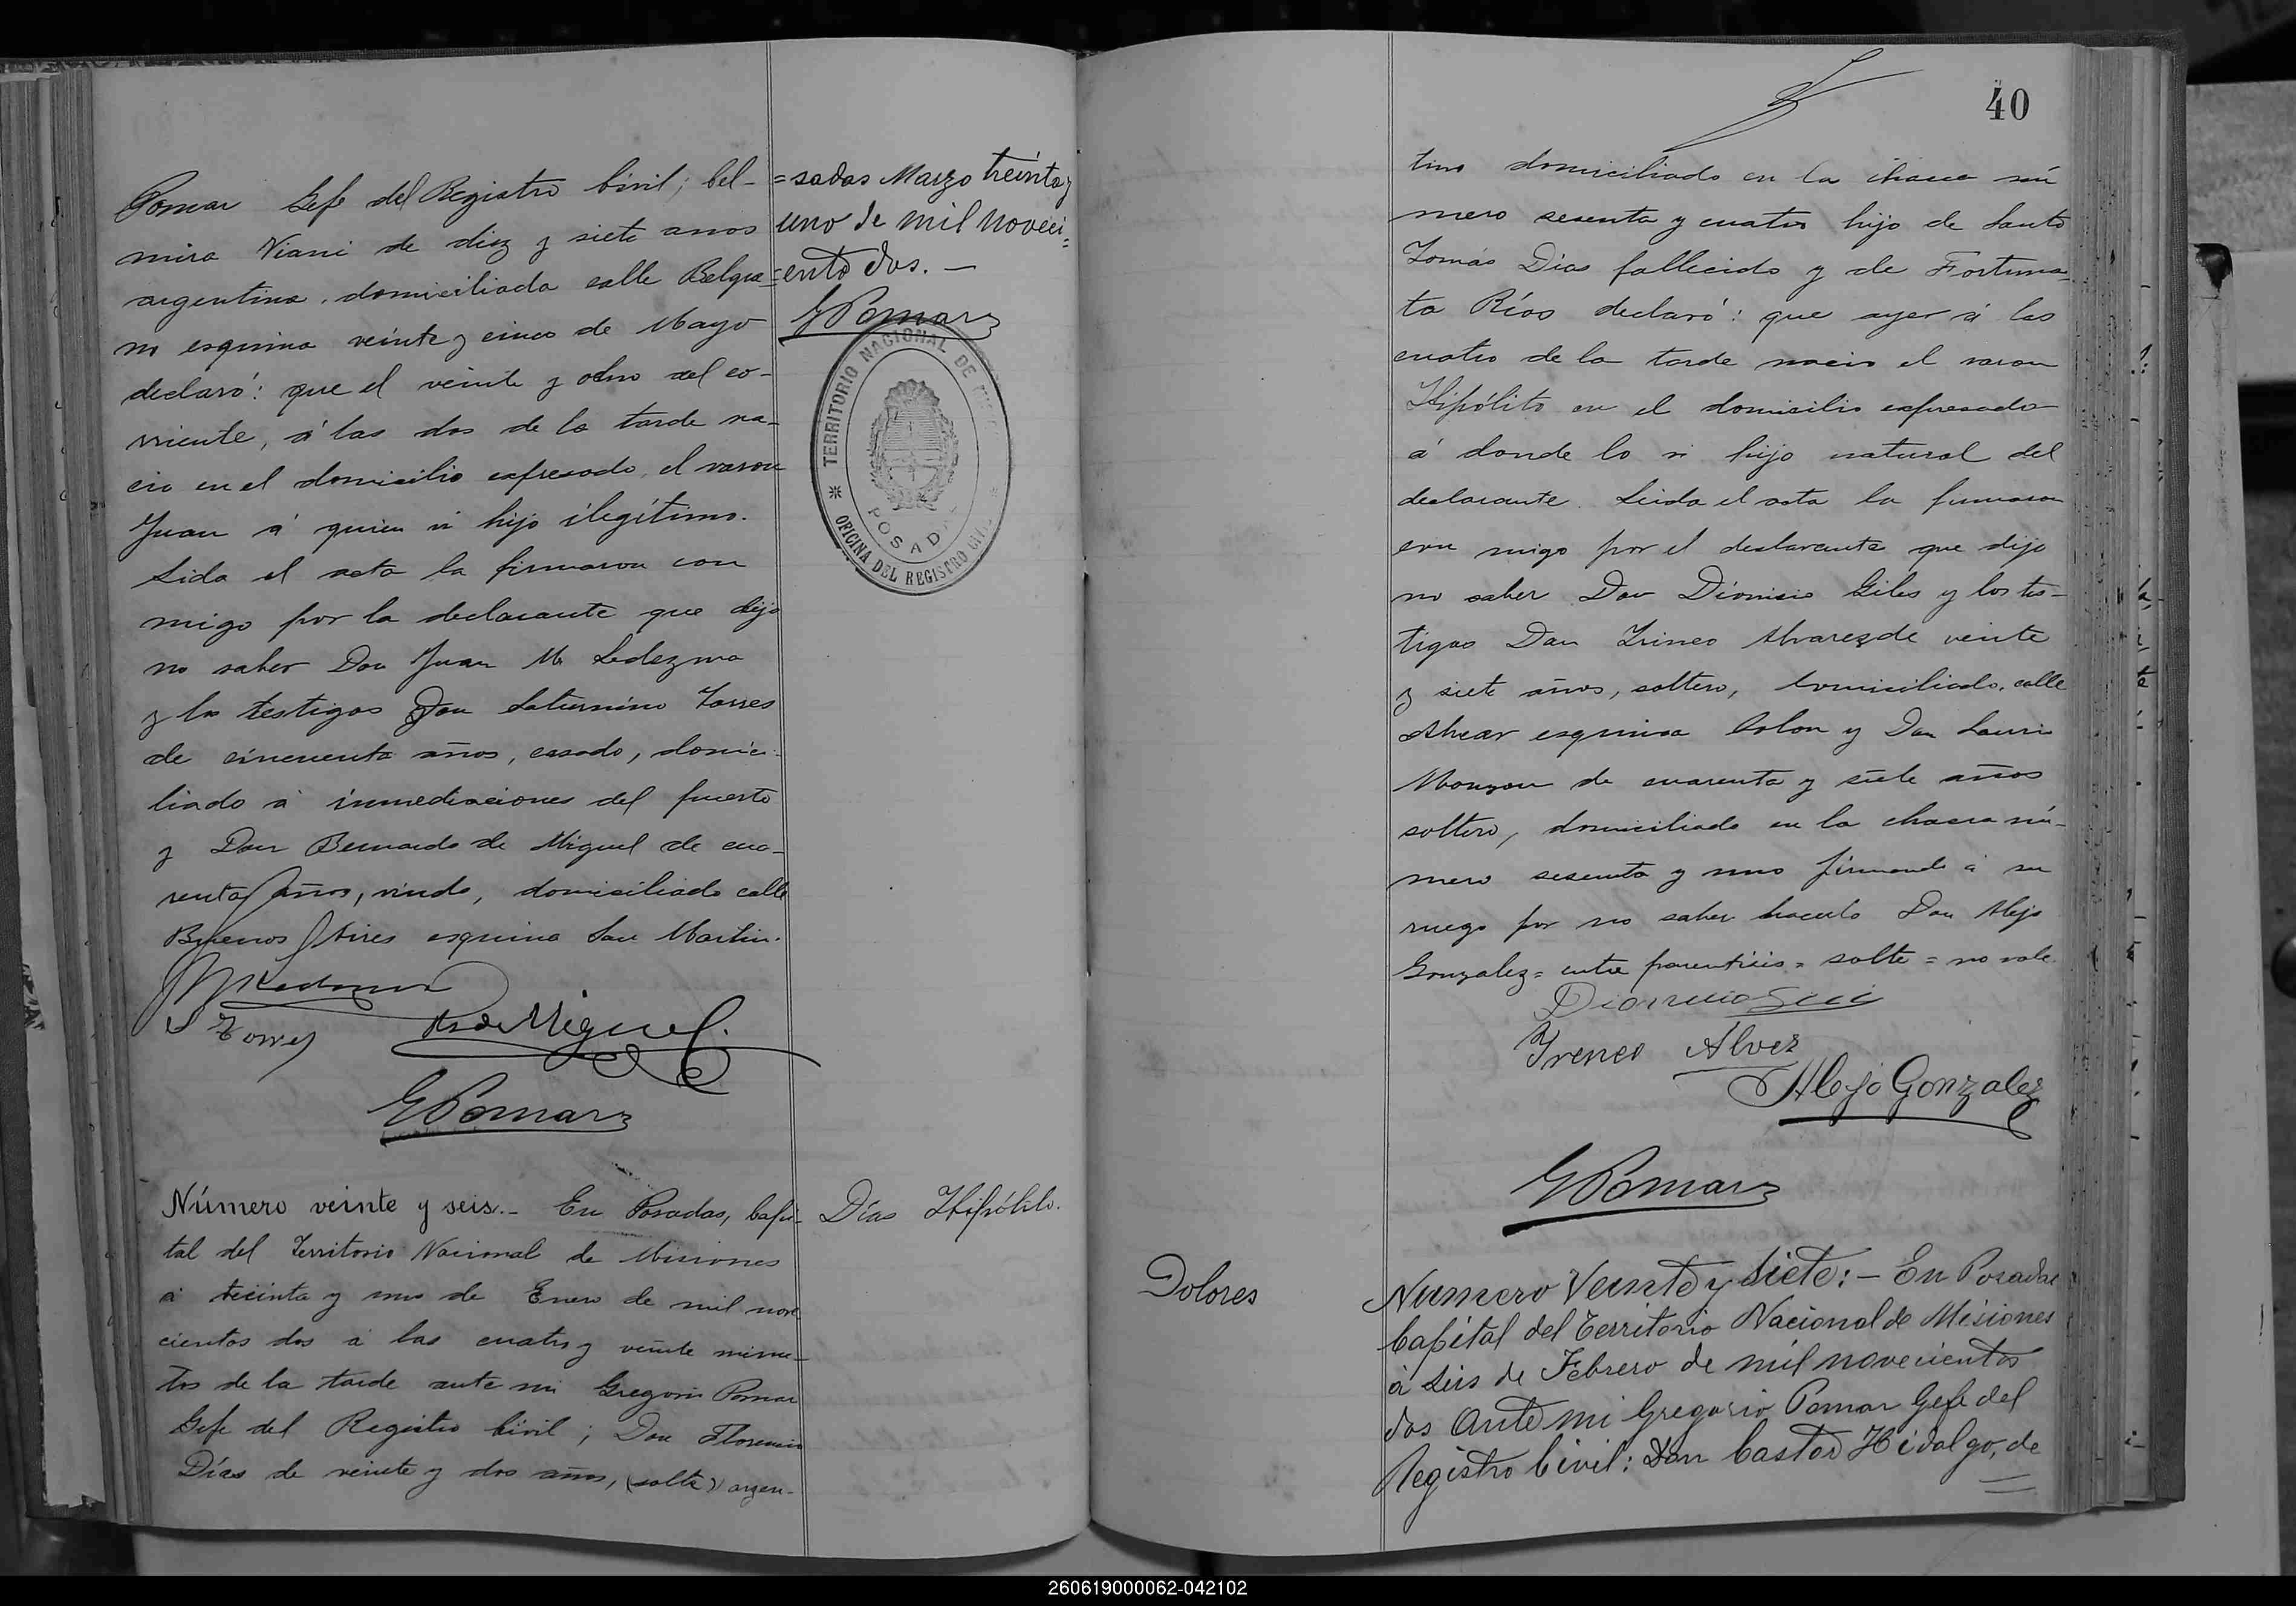 Pomar Gefe del Registro Civil; Cel-
mira Viani de diez y siete anos
argentina, domiciliada calle Belgra-
no esquina veinte y cinco de Mayo
declaró: que el veinte y ocho del co-
rriente, á las dos de la tarde na-
cio en el domicilio expresado, el varon
Juan á quien vi hijo ilegítimo.
Lida el acta la firmaron con
migo por la declarante que dijo
no saber Don Juan M Ledezma
y los testigos Don Saturnino Torres
de cincuenta años, casado, domici-
liado á inmediaciones del puerto
y Don Bernardo de Miguel de cua-
renta años, viudo, domiciliado calle
Buenos Aires esquina San Martin.
JMLedesma
S Torres
Bdo de Miguel
GPomar
=sadas Marzo treinta y
uno de mil noveci=
=ento dos. —
GPomar
TERRITORIO NACIONAL DE
POSADAS
OFICINA DEL REGISTRO CIVIL
Número veinte y seis.- En Posadas, Capi-
tal del Territorio Nacional de Misiones
á treinta y uno de Enero de mil nove
cientos dos á las cuatro y veinte minu-
tos de la tarde ante mi Gregorio Pomar
Gefe del Registro Civil; Don Florencio
Días de veinte y dos años, (solte) argen-
Días Hipólito.
40
tino domiciliado en la chacra nú
mero sesenta y cuatro hijo de Santo
Tomás Dias fallecido y de Fortuna-
ta Ríos declaró: que ayer á las
cuatro de la tarde nacio el varon
Hipólito en el domicilio expresado
á donde lo vi hijo natural del
declarante. Leida el acta la firmaron
con migo por el declarante que dijo
no saber Don Dionisio Giles y los tes-
tigos Don Irineo Alvarez de veinte
y siete años, soltero, domiciliado, calle
Alvear esquina Colon y Don Lauri
Monzon de cuarenta y siete años
soltero, domiciliado en la chacra nú-
mero sesenta y uno firmando á su
ruego por no saber hacerlo Don Alejo
Gonzalez = entre parentісis = solte = no vale
Dionicio
Yreneo Alvez
Alejo Gonzalez
GPomar
Dolores
Numero Veinte y Siete:- En Posadas
Capital del Territorio Nacional de Misiones
á Seis de Febrero de mil novecientos
dos Ante mi Gregorio Pomar Gefe del
Registro Civil: Don Castor Hidalgo, de
260619000062-042102